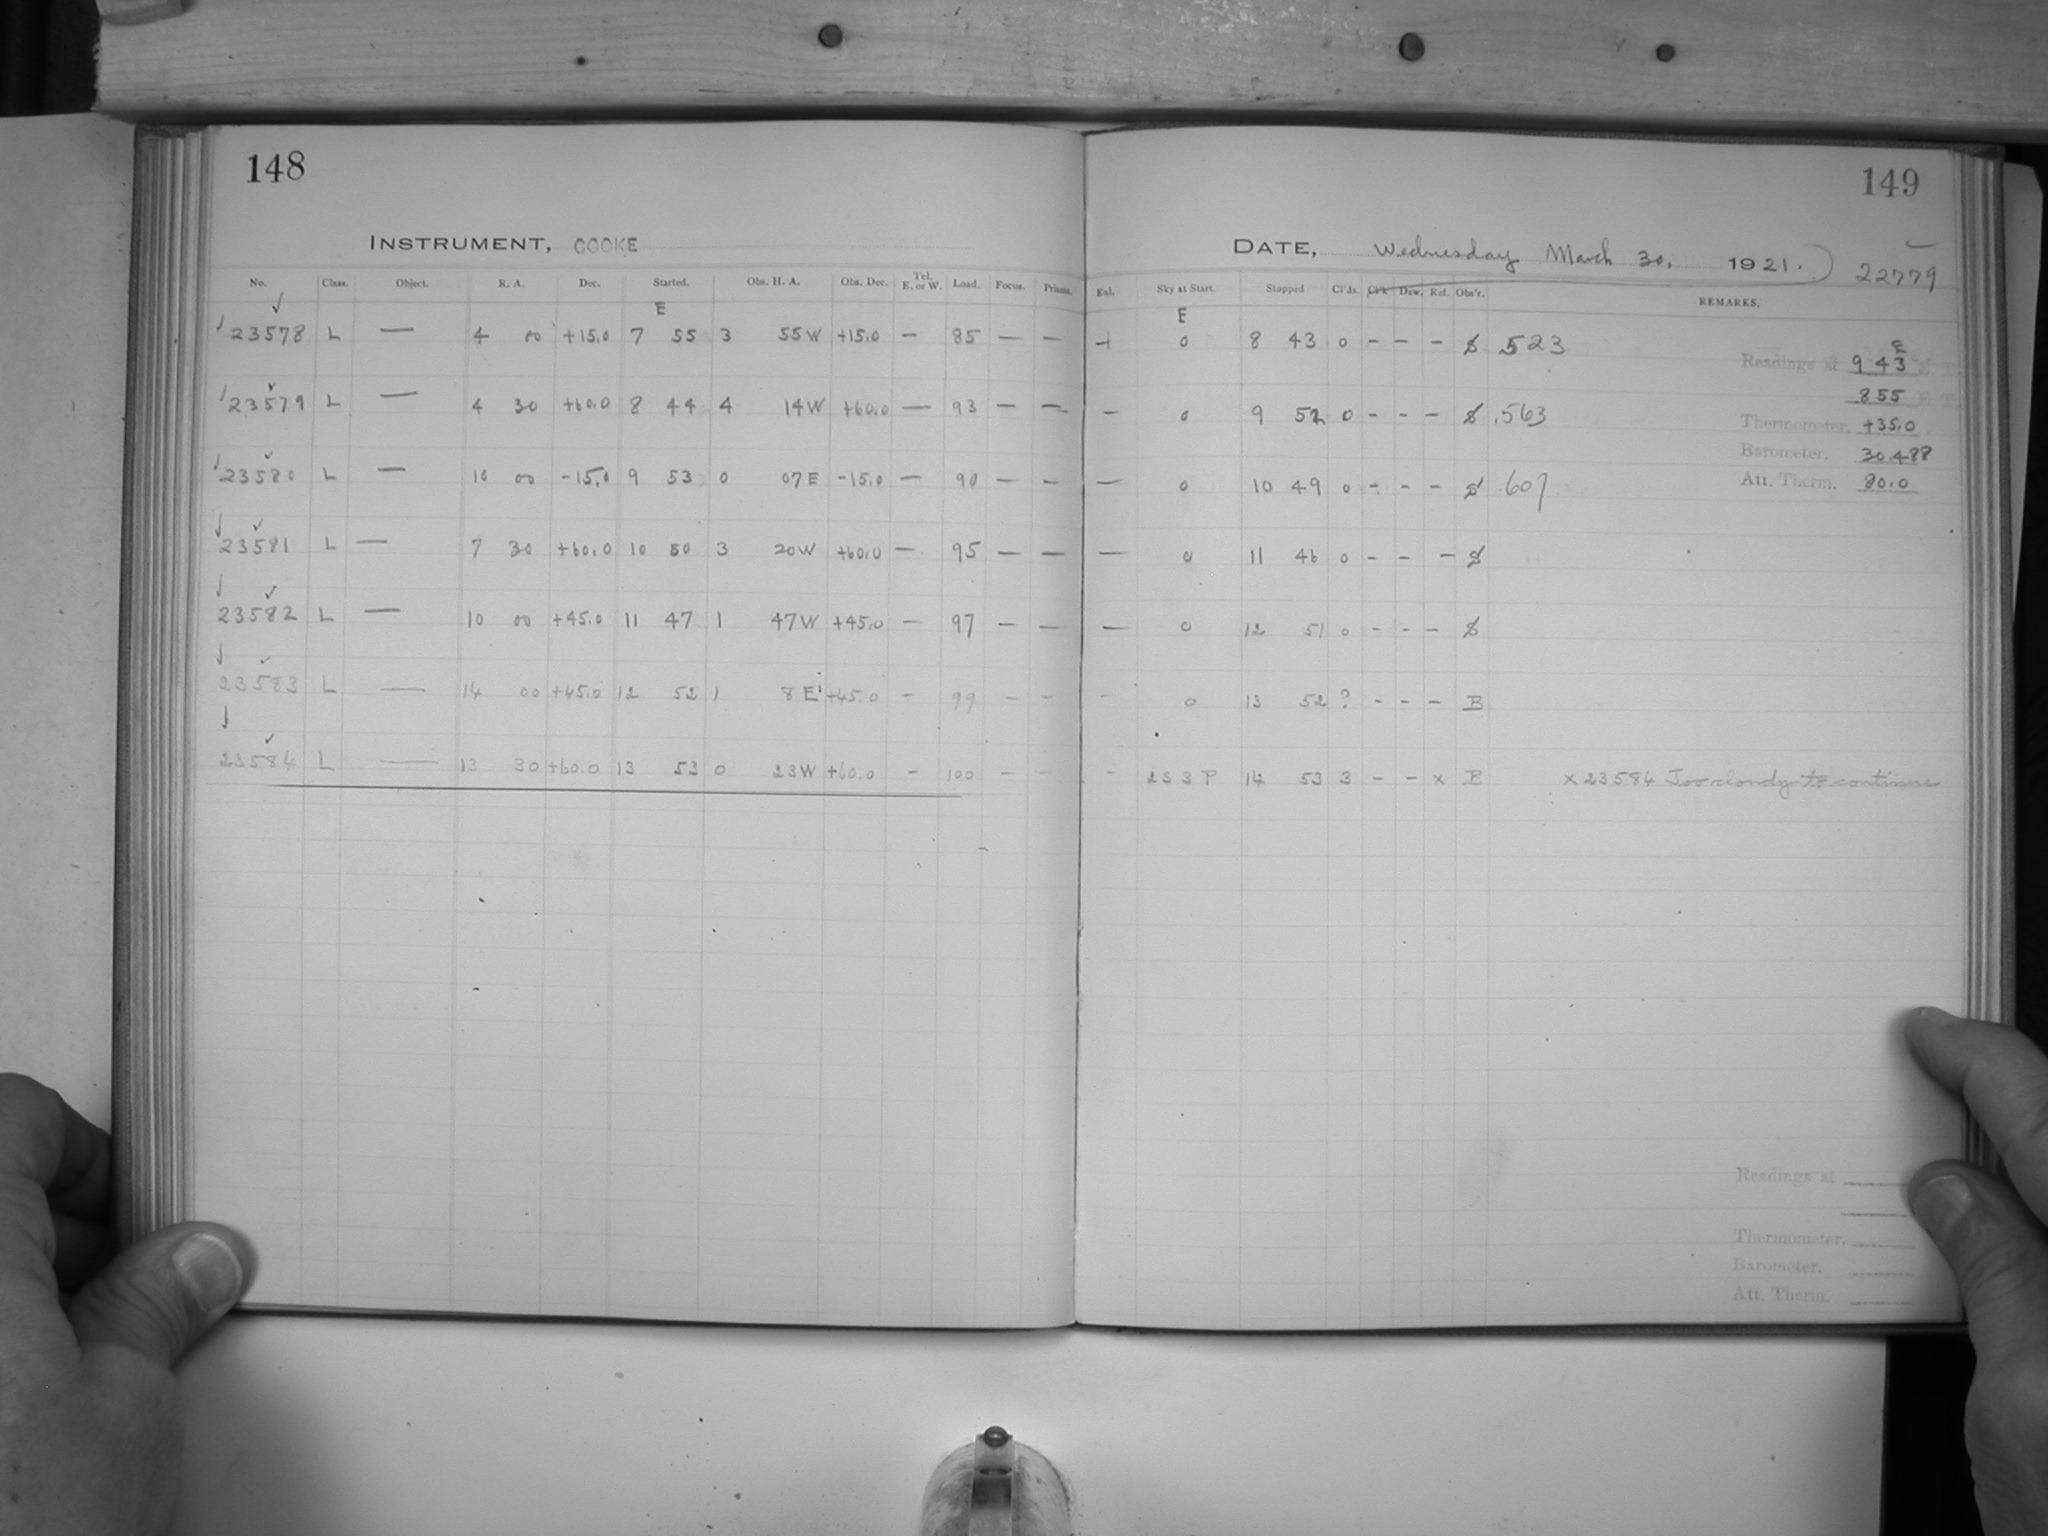 148
149
INSTRUMENT, COOKE
DATE, Wednesday March 30, 1921.
22779
No. Class. Object. R. A. Dec. Started. Obs. H. A. Obs. Dec. Tel. E. or W. Load. Focus. Prisms. Exl. Sky at Start. Stopped Cl'ds. Cl'k Dew. Ref. Obs'r. REMARKS.
E E
23578 L — 4 00 +15.0 7 55 3 55 W +15.0 — 85 — — + 0 8 43 0 - - - S .523
Readings at 9 43 E
855
23579 L — 4 30 +60.0 8 44 4 14 W +60.0 — 93 — — — 0 9 52 0 - - - S .563
Thermometer. +35.0
Barometer. 30.488
23580 L — 10 00 -15.0 9 53 0 07 E -15.0 — 90 — — — 0 10 49 0 - - - S .607
Att. Therm. 80.0
23581 L — 7 30 +60.0 10 50 3 20 W +60.0 — 95 — — — 0 11 46 0 - - - S
23582 L — 10 00 +45.0 11 47 1 47 W +45.0 — 97 — — — 0 12 51 0 - - - S
23583 L — 14 00 +45.0 12 52 1 8 E +45.0 - 99 - - - 0 13 52 ? - - - B
23584 L — 13 30 +60.0 13 53 0 23 W +60.0 - 100 - - - 2 S 3 P 14 53 3 - - x B x 23584 Too cloudy to continue
Readings at
Thermometer.
Barometer.
Att. Therm.